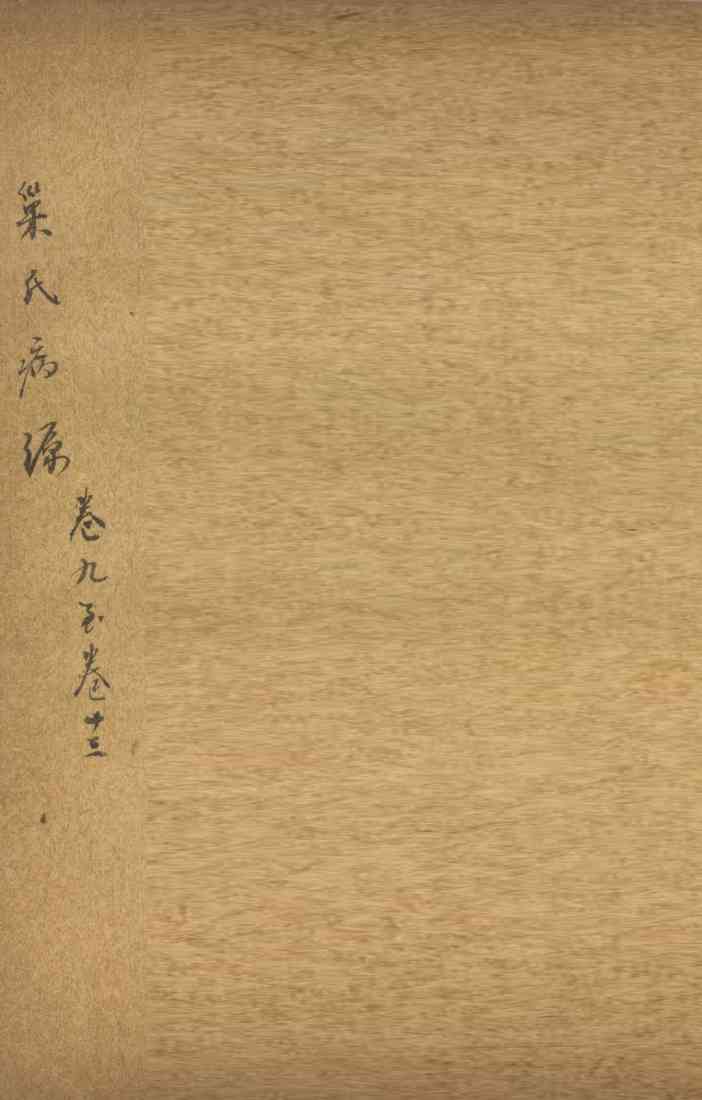 巢氏病源
卷九至卷十三